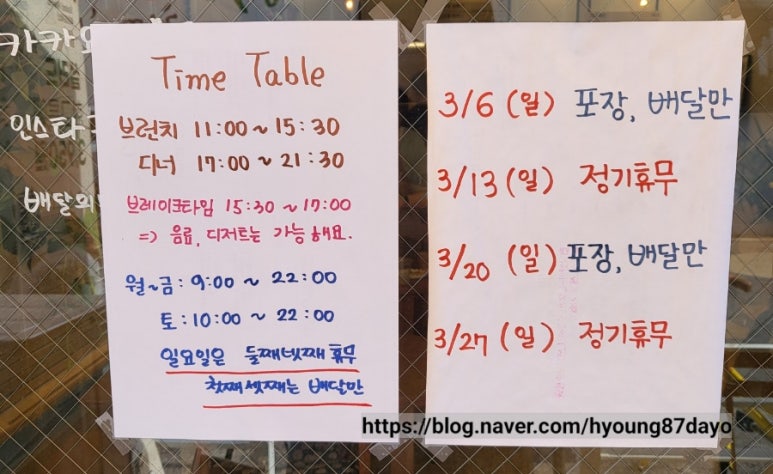 카카오
인스타
배달의
Time Table
브런치 11:00 ~ 15:30
디너 17:00 ~ 21:30
브레이크타임 15:30 ~ 17:00
=> 음료, 디저트는 가능해요.
월~금: 9:00 ~ 22:00
토: 10:00 ~ 22:00
일요일은 둘째넷째 휴무
첫째셋째는 배달만
3/6 (일) 포장, 배달만
3/13 (일) 정기휴무
3/20 (일) 포장, 배달만
3/27 (일) 정기휴무
https://blog.naver.com/hyoung87dayo